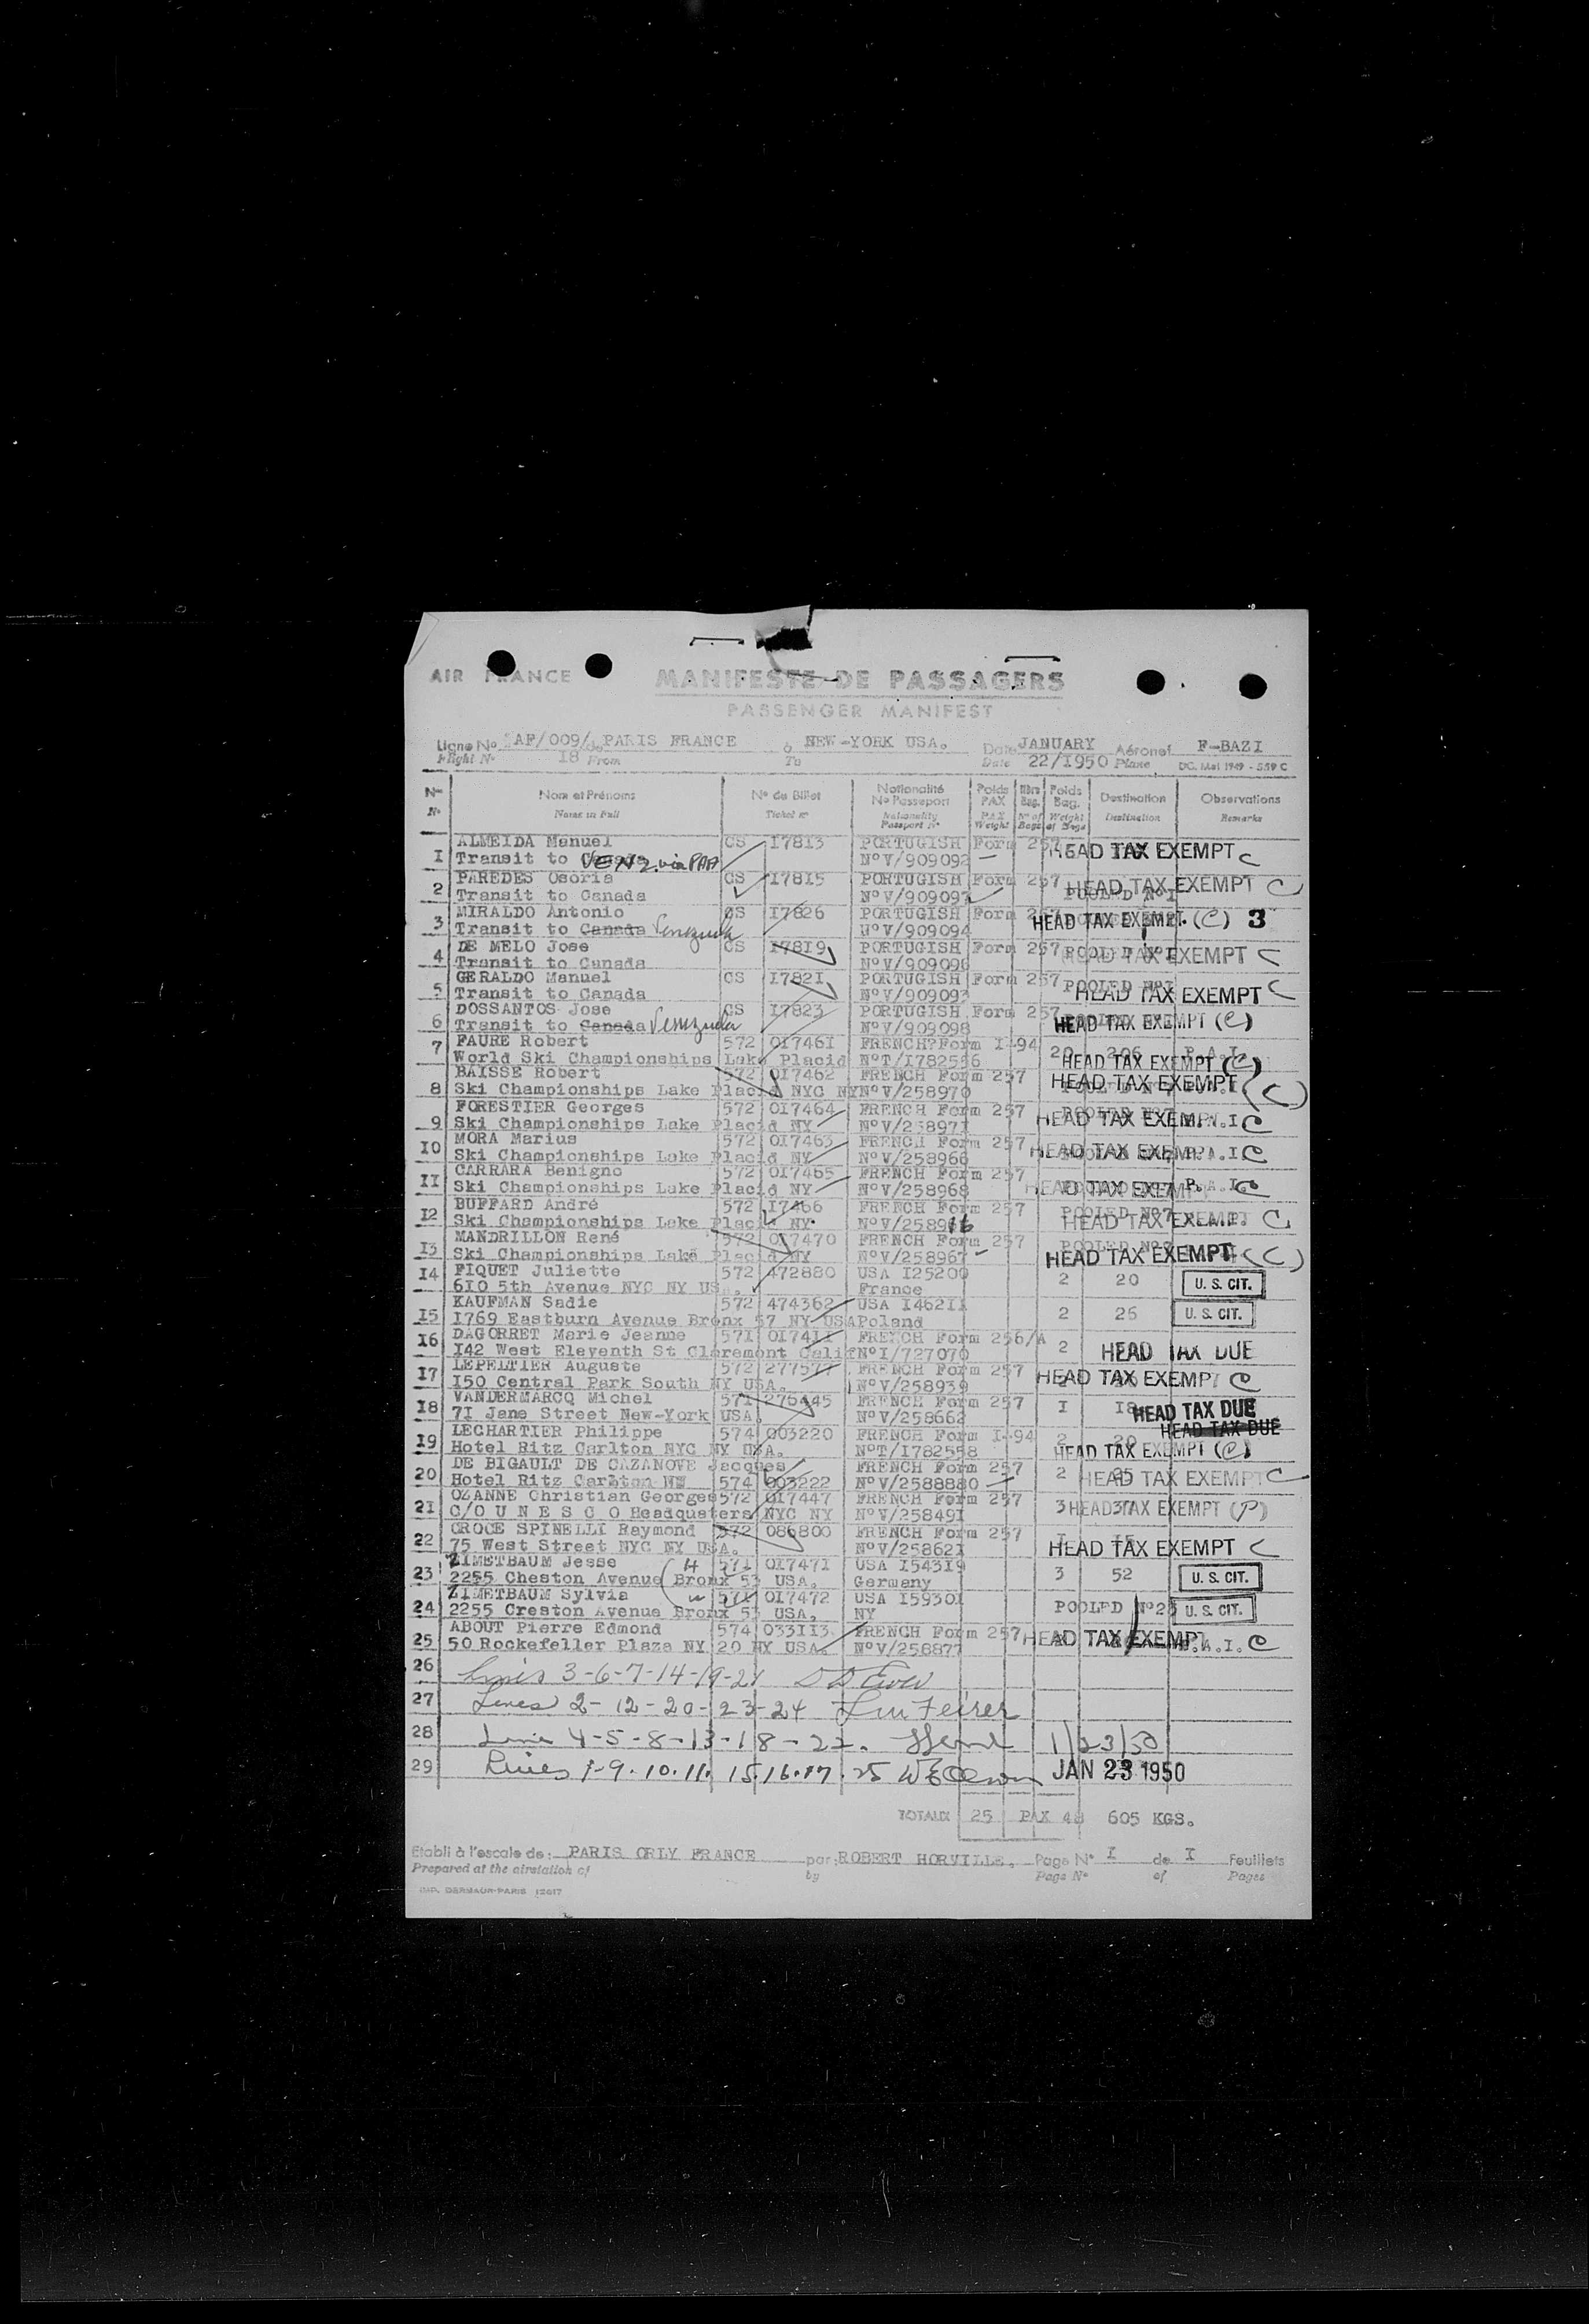 AIR FRANCE
MANIFESTE DE PASSAGERS
PASSENGER MANIFEST
Ligne No AF/009/ de PARIS FRANCE à NEW-YORK USA. Date JANUARY Aéronef F-BAZI
Flight No 18 From To Date 22/I950 Plane DC. Mai 1949 - 559 C
No Nom et Prénoms No de Billet Nationalité No Passeport Poids PAX Nbre Bag. Poids Bag. Destination Observations
No Names in Full Ticket no Nationality Passport No PAX Weight No of Bags Weight of Bags Destination Remarks
ALMEIDA Manuel CS I78I3 PORTUGISH Form 257
I Transit to VENZ. via PAA NoV/909092 HEAD TAX EXEMPT C
PAREDES Osoria CS I78I5 PORTUGISH Form 257
2 Transit to Canada NoV/909097 POOLED NoI HEAD TAX EXEMPT C
MIRALDO Antonio CS I7826 PORTUGISH Form
3 Transit to Canada Venezuela NoV/909094 HEAD TAX EXEMPT. (C) 3
DE MELO Jose CS I78I9 PORTUGISH Form 257
4 Transit to Canada NoV/909096 POOLED HEAD TAX EXEMPT C
GERALDO Manuel CS I782I PORTUGISH Form 257
5 Transit to Canada NoV/909093 POOLED NoI HEAD TAX EXEMPT C
DOSSANTOS Jose CS I7823 PORTUGISH Form 257
6 Transit to Canada Venezuela NoV/909098 HEAD TAX EXEMPT (C)
7 FAURE Robert 572 0I746I FRENCH?Form I-94 20 206 P.A.I.
World Ski Championships Lake Placid NoT/I782556 HEAD TAX EXEMPT (C)
BAISSE Robert 572 0I7462 FRENCH Form 257
8 Ski Championships Lake Placid NYC NY NoV/258970 HEAD TAX EXEMPT (C)
FORESTIER Georges 572 0I7464 FRENCH Form 257
9 Ski Championships Lake Placid NY NoV/25897I HEAD TAX EXEMPT C
MORA Marius 572 0I7463 FRENCH Form 257
I0 Ski Championships Lake Placid NY NoV/258966 HEAD TAX EXEMPT P.A.I C
CARRARA Benigno 572 0I7465 FRENCH Form 257
II Ski Championships Lake Placid NY NoV/258968 HEAD TAX EXEMPT P.A.I. C
BUFFARD André 572 I7466 FRENCH Form 257
I2 Ski Championships Lake Placid NY. NoV/2589 16 POOLED No7 HEAD TAX EXEMPT C
MANDRILLON René 572 0I7470 FRENCH Form 257
I3 Ski Championships Lake Placid NY NoV/258967 HEAD TAX EXEMPT (C)
I4 FIQUET Juliette 572 472880 USA I25200 2 20 U. S. CIT.
6I0 5th Avenue NYC NY USA. France
KAUFMAN Sadie 572 474362 USA I462II
I5 I769 Eastburn Avenue Bronx 57 NY USA Poland 2 26 U. S. CIT.
I6 DAGORRET Marie Jeanne 57I 0I74II FRENCH Form 256/A 2 HEAD TAX DUE
I42 West Eleventh St Claremont Calif NoI/727070
I7 LEPELTIER Auguste 572 277577 FRENCH Form 257
I50 Central Park South NY USA. NoV/258939 HEAD TAX EXEMPT C
I8 VANDERMARCQ Michel 57I 276445 FRENCH Form 257 I I8 HEAD TAX DUE
7I Jane Street New-York USA. NoV/258662 HEAD TAX DUE
I9 LECHARTIER Philippe 574 003220 FRENCH Form I-94 2 20
Hotel Ritz Carlton NYC NY USA. NoT/I782558 HEAD TAX EXEMPT (C)
DE BIGAULT DE CAZANOVE Jacques FRENCH Form 257
20 Hotel Ritz Carlton NY 574 003222 NoV/2588880 2 25 HEAD TAX EXEMPT C
OZANNE Christian Georges 572 0I7447 FRENCH Form 257
2I C/O U N E S C O Headquaters NYC NY NoV/25849I 3 HEAD TAX EXEMPT (P)
CROCE SPINELLI Raymond 572 086800 FRENCH Form 257 I I5
22 75 West Street NYC NY USA. NoV/25862I HEAD TAX EXEMPT C
ZIMETBAUM Jesse H 57I 0I747I USA I543I9
23 2255 Cheston Avenue Bronx 53 USA. Germany 3 52 U. S. CIT.
ZIMETBAUM Sylvia w 57I 0I7472 USA I5930I
24 2255 Creston Avenue Bronx 53 USA. NY POOLED No23 U. S. CIT.
ABOUT Pierre Edmond 574 033II3 FRENCH Form 257
25 50 Rockefeller Plaza NY 20 NY USA. NoV/256877 HEAD TAX EXEMPT P.A.I. C
26 Lines 3-6-7-14-19-21
27 Lines 2-12-20-23-24
28 Line 4-5-8-13-18-22. 1/23/50
29 Lines 1-9.10.11. 15.16.17.25 JAN 23 1950
TOTAUX 25 PAX 48 605 KGS.
Etabli à l'escale de: PARIS ORLY FRANCE par: ROBERT HORVILLE. Page No I de I Feuillets
Prepared at the airstation of by Page No of Pages
IMP. DERMAUR-PARIS 12617